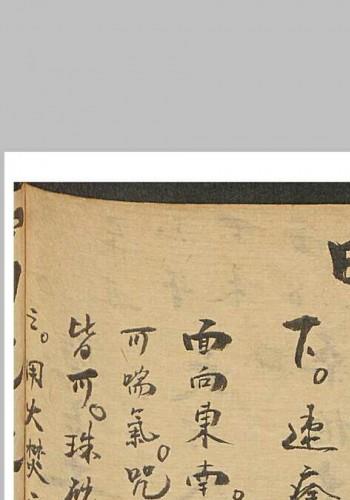 下。速痊
面向東南。
可喘氣。咒
皆可。珠砂
之。用火焚